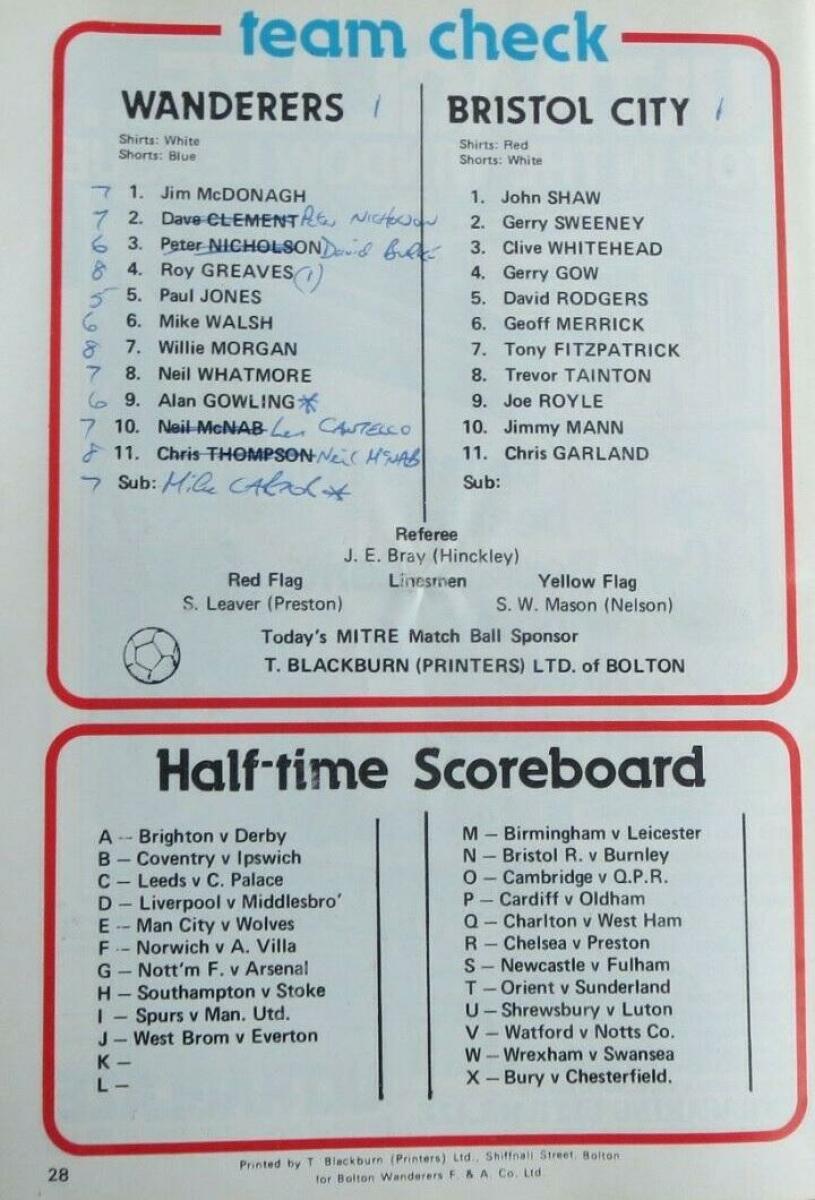 team check
WANDERERS 1
Shirts: White
Shorts: Blue
7 1. Jim McDONAGH
7 2. Dave CLEMENT Peter NICHOLSON
6 3. Peter NICHOLSON David Burke
8 4. Roy GREAVES (1)
5 5. Paul JONES
6 6. Mike WALSH
8 7. Willie MORGAN
7 8. Neil WHATMORE
6 9. Alan GOWLING *
7 10. Neil McNAB Len CANTELLO
8 11. Chris THOMPSON Neil McNAB
7 Sub: Mike *
BRISTOL CITY 1
Shirts: Red
Shorts: White
1. John SHAW
2. Gerry SWEENEY
3. Clive WHITEHEAD
4. Gerry GOW
5. David RODGERS
6. Geoff MERRICK
7. Tony FITZPATRICK
8. Trevor TAINTON
9. Joe ROYLE
10. Jimmy MANN
11. Chris GARLAND
Sub:
Referee
J. E. Bray (Hinckley)
Red Flag Linesmen Yellow Flag
S. Leaver (Preston) S. W. Mason (Nelson)
Today's MITRE Match Ball Sponsor
T. BLACKBURN (PRINTERS) LTD. of BOLTON
Half-time Scoreboard
A — Brighton v Derby
B — Coventry v Ipswich
C — Leeds v C. Palace
D — Liverpool v Middlesbro'
E — Man City v Wolves
F — Norwich v A. Villa
G — Nott'm F. v Arsenal
H — Southampton v Stoke
I — Spurs v Man. Utd.
J — West Brom v Everton
K —
L —
M — Birmingham v Leicester
N — Bristol R. v Burnley
O — Cambridge v Q.P.R.
P — Cardiff v Oldham
Q — Charlton v West Ham
R — Chelsea v Preston
S — Newcastle v Fulham
T — Orient v Sunderland
U — Shrewsbury v Luton
V — Watford v Notts Co.
W — Wrexham v Swansea
X — Bury v Chesterfield.
Printed by T. Blackburn (Printers) Ltd., Shiffnall Street, Bolton
for Bolton Wanderers F. & A. Co. Ltd.
28